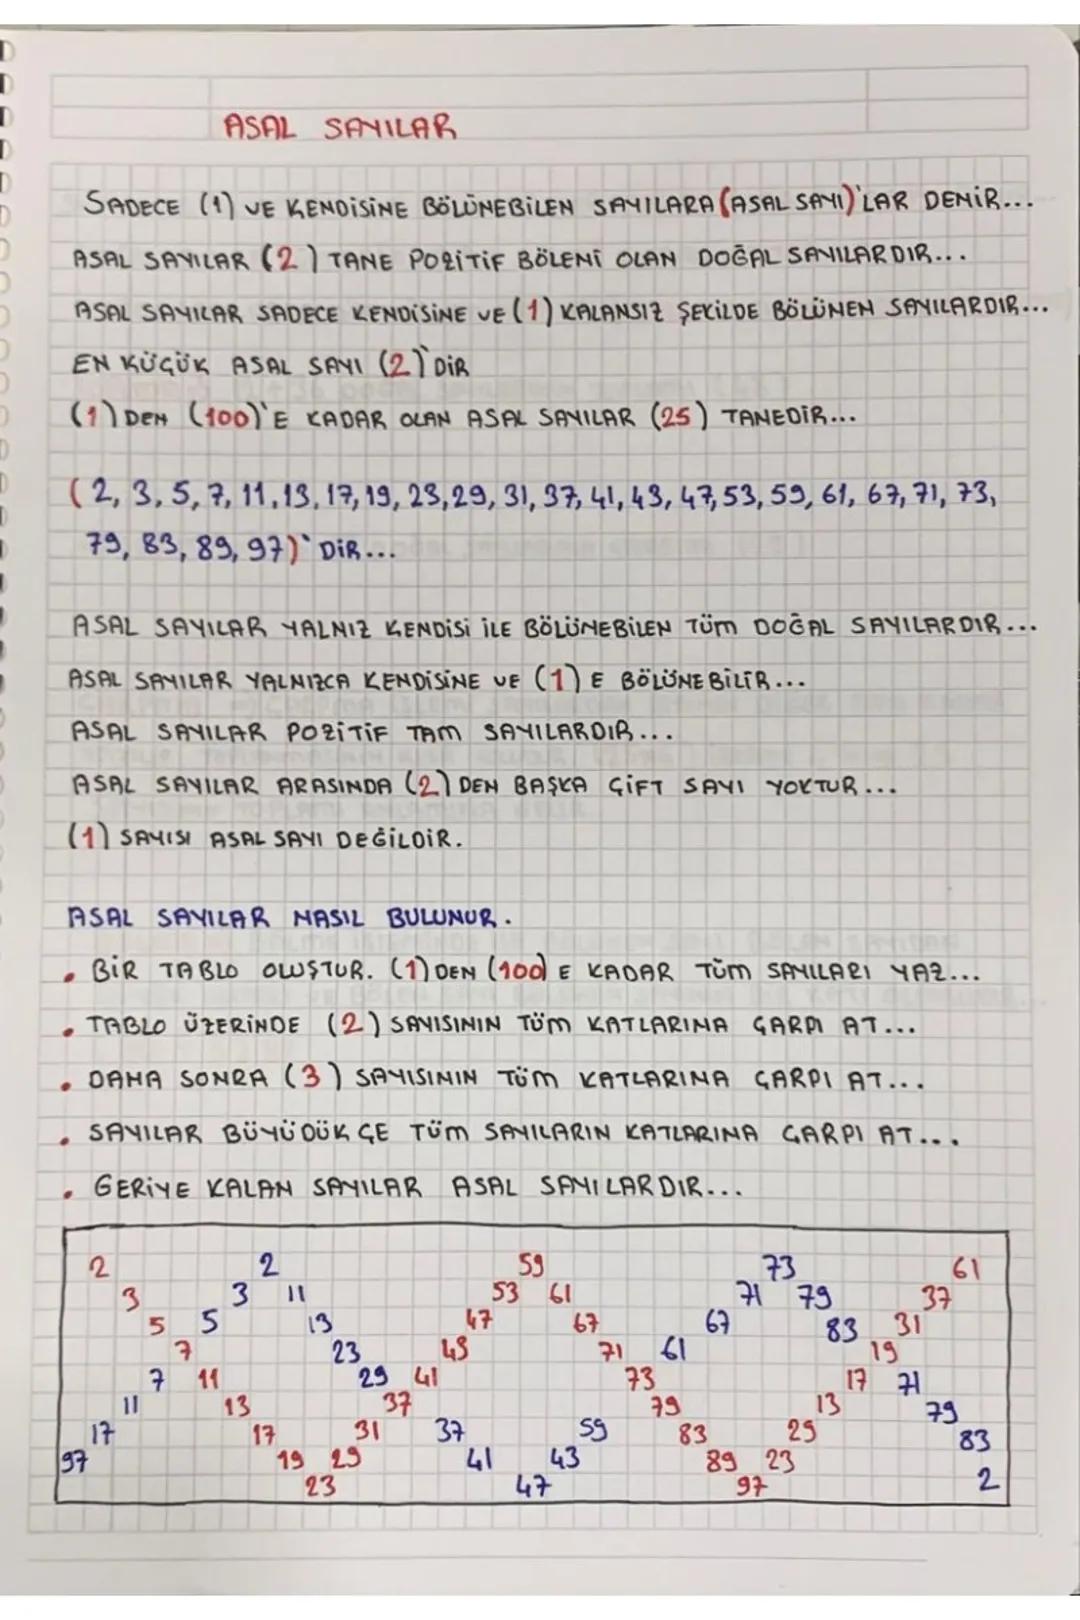 ASAL SAYILAR
SADECE (1) VE KENDİSİNE BÖLÜNEBİLEN SAYILARA (ASAL SAYI)'LAR DENİR...
ASAL SAYILAR (2) TANE POZİTİF BÖLENİ OLAN DOĞAL SAYILARDIR...
ASAL SAYILAR SADECE KENDİSİNE VE (1) KALANSIZ ŞEKİLDE BÖLÜNEN SAYILARDIR...
EN KÜÇÜK ASAL SAYI (2)'DİR
(1) DEN (100)'E KADAR OLAN ASAL SAYILAR (25) TANEDİR...
(2, 3, 5, 7, 11, 13, 17, 19, 23, 29, 31, 37, 41, 43, 47, 53, 59, 61, 67, 71, 73,
79, 83, 89, 97)' DİR...
ASAL SAYILAR YALNIZ KENDİSİ İLE BÖLÜNEBİLEN TÜM DOĞAL SAYILARDIR...
ASAL SAYILAR YALNIZCA KENDİSİNE VE (1) E BÖLÜNEBİLİR...
ASAL SAYILAR POZİTİF TAM SAYILARDIR...
ASAL SAYILAR ARASINDA (2) DEN BAŞKA ÇİFT SAYI YOKTUR...
(1) SAYISI ASAL SAYI DEĞİLDİR.
ASAL SAYILAR NASIL BULUNUR.
• BİR TABLO OLUŞTUR. (1) DEN (100) E KADAR TÜM SAYILARI YAZ...
• TABLO ÜZERİNDE (2) SAYISININ TÜM KATLARINA ÇARPI AT...
• DAHA SONRA (3) SAYISININ TÜM KATLARINA ÇARPI AT...
• SAYILAR BÜYÜDÜKÇE TÜM SAYILARIN KATLARINA ÇARPI AT...
• GERİYE KALAN SAYILAR ASAL SAYILARDIR...
2 2 59 73 61
3 3 11 53 61 71 79 37
5 5 13 47 67 67 83 31
7 23 43 71 61 19
7 11 29 41 73 17 71
11 13 37 79 13 79
17 17 31 37 59 83 29 83
97 19 29 41 43 89 23
23 47 97 2